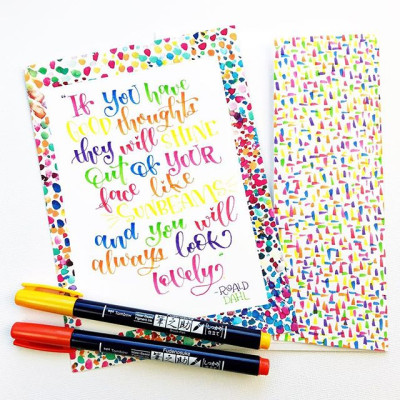 "If you have
GOOD thoughts
they will SHINE
Out OF YOUR
face like
SUNBEAMS
and you will
always look
lovely"
-ROALD
DAHL
Tombow
筆之助
Tombow
Fudenosuke
筆之助